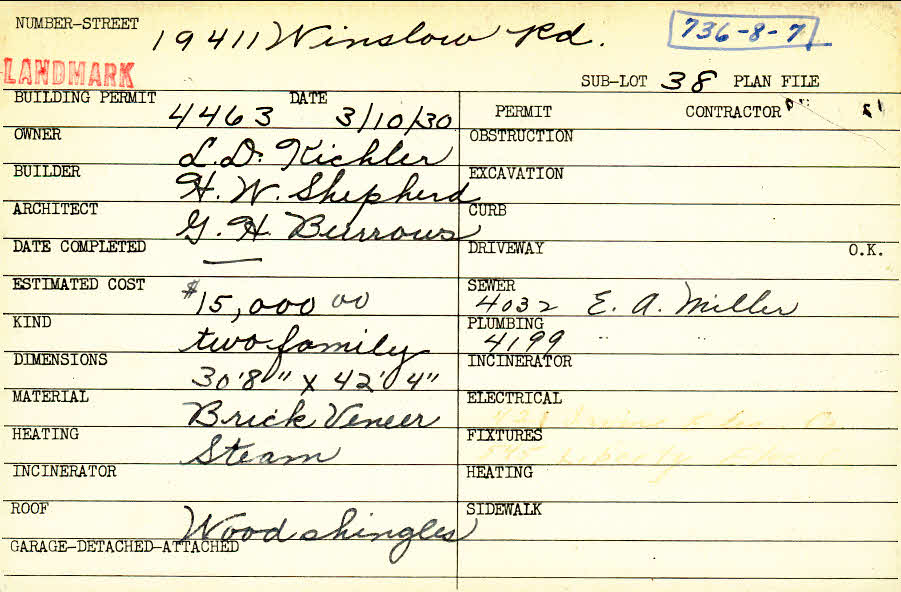 NUMBER-STREET 19411 Winslow Rd. 736-8-7
LANDMARK
SUB-LOT 38 PLAN FILE
BUILDING PERMIT 4463 DATE 3/10/30
OWNER L.D. Kichler
BUILDER H. W. Shepherd
ARCHITECT G. H. Burrows
DATE COMPLETED —
ESTIMATED COST $15,000 00
KIND two family
DIMENSIONS 30'8" x 42' 4"
MATERIAL Brick Veneer
HEATING Steam
INCINERATOR
ROOF Wood shingles
GARAGE-DETACHED-ATTACHED
PERMIT CONTRACTOR
OBSTRUCTION
EXCAVATION
CURB
DRIVEWAY O.K.
SEWER 4032 E. A. Miller
PLUMBING 4199 " "
INCINERATOR
ELECTRICAL
FIXTURES
HEATING
SIDEWALK